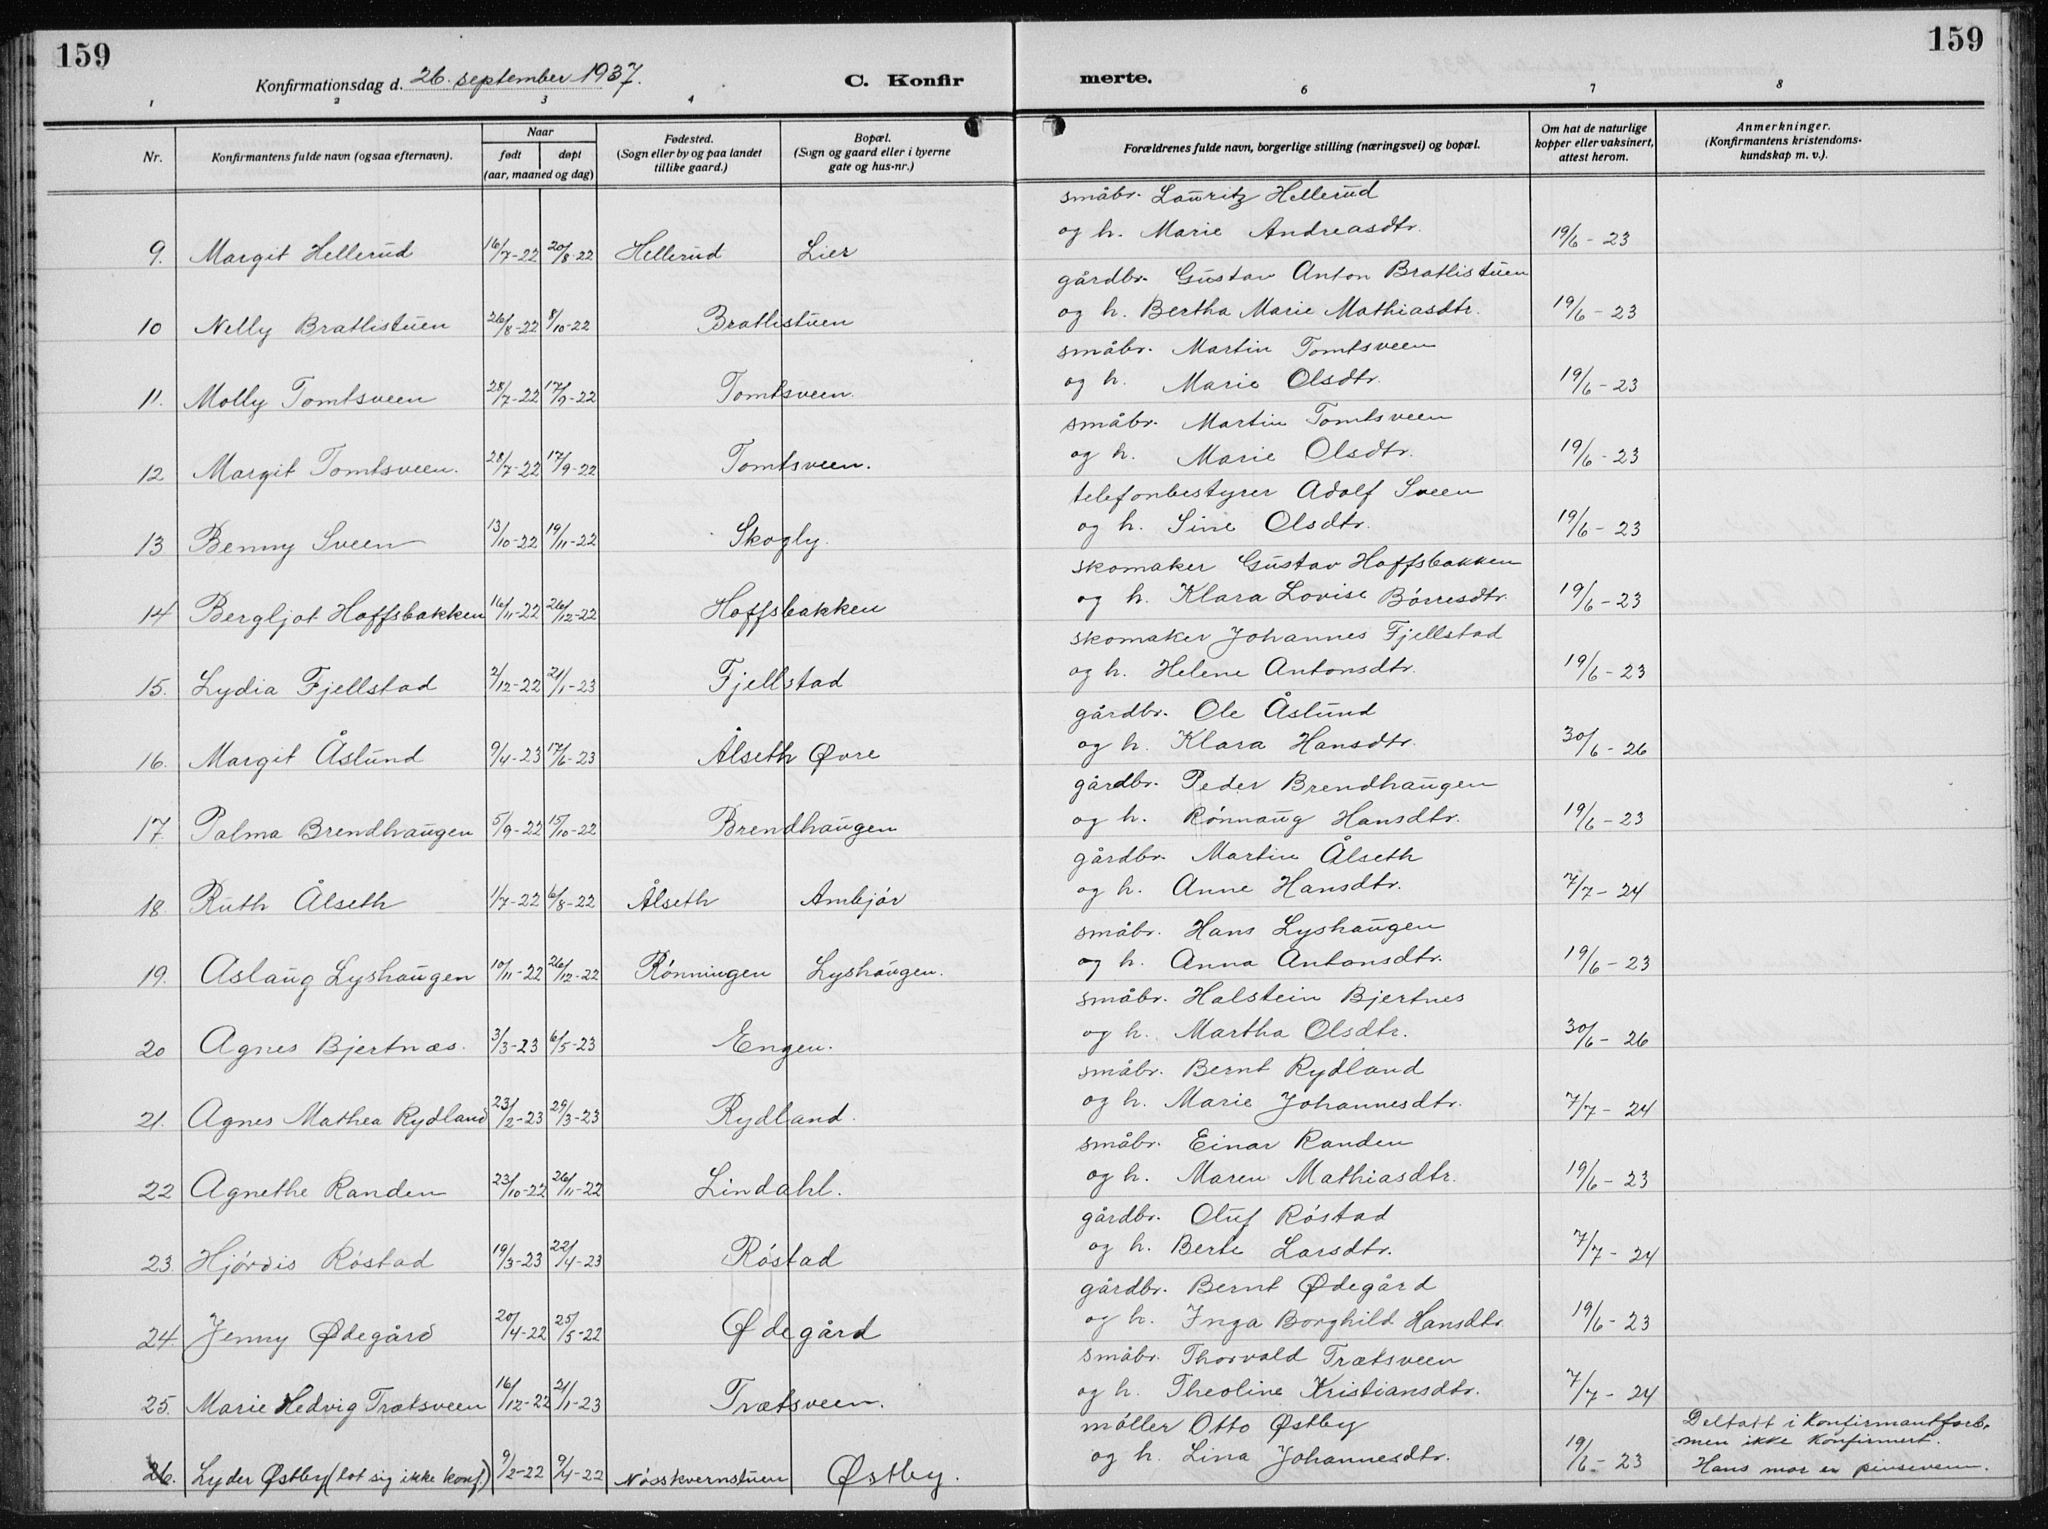 159
159
Konfirmationsdag d. 26. september 1937.
C. Konfir
merte.
1 2 3 4 6 7 8
Nr.
Konfirmantens fulde navn (ogsaa efternavn).
Naar
født
døpt
(aar, maaned og dag)
Fødested.
(Sogn eller by og paa landet
tillike gaard.)
Bopæl.
(Sogn og gaard eller i byerne
gate og hus-nr.)
Forældrenes fulde navn, borgerlige stilling (næringsvei) og bopæl.
Om hat de naturlige
kopper eller vaksinert,
attest herom.
Anmerkninger.
(Konfirmantens kristendoms-
kundskap m. v.).
småbr. Lauritz Hellerud
9. Margit Hellerud 16/7-22 20/8-22 Hellerud Lier og h. Marie Andreasdtr. 19/6-23
gårdbr. Gustav Anton Bratlistuen
10 Nelly Bratlistuen 26/8-22 8/10-22 Bratlistuen og h. Bertha Marie Mathiasdtr. 19/6-23
småbr. Martin Tomtsveen
11. Molly Tomtsveen 28/7-22 17/9-22 Tomtsveen. og h. Marie Olsdtr. 19/6-23
småbr. Martin Tomtsveen
12 Margit Tomtsveen. 28/7-22 17/9-22 Tomtsveen. og h. Marie Olsdtr. 19/6-23
telefonbestyrer Adolf Sveen
13 Benny Sveen 13/10-22 19/11-22 Skogly. og h. Sine Olsdtr. 19/6-23
skomaker Gustav Hoffsbakken
14 Bergljot Hoffsbakken 16/11-22 26/12-22 Hoffsbakken og h. Klara Lovise Børresdtr. 19/6-23
skomaker Johannes Fjellstad
15. Lydia Fjellstad 2/12-22 21/1-23 Fjellstad og h. Helene Antonsdtr. 19/6-23
gårdbr. Ole Åslund
16. Margit Åslund 9/4-23 17/6-23 Ålseth Øvre og h. Klara Hansdtr. 30/6-26
gårdbr. Peder Brendhaugen
17 Palma Brendhaugen 5/9-22 15/10-22 Brendhaugen og h. Rønnaug Hansdtr. 19/6-23
gårdbr. Martin Ålseth
18. Ruth Ålseth 1/7-22 6/8-22 Ålseth Ambjør og h. Anne Hansdtr. 7/7-24
småbr. Hans Lyshaugen
19. Aslaug Lyshaugen 10/11-22 26/12-22 Rønningen Lyshaugen. og h. Anna Antonsdtr. 19/6-23
småbr. Halstein Bjertnes
20 Agnes Bjertnæs. 3/3-23 6/5-23 Engen. og h. Martha Olsdtr. 30/6-26
småbr. Bernt Rydland
21. Agnes Mathea Rydland 23/2-23 29/3-23 Rydland. og h. Marie Johannesdtr. 7/7-24
småbr. Einar Randen
22 Agnethe Randen 23/10-22 26/11-22 Lindahl. og h. Maren Mathiasdtr. 19/6-23
gårdbr. Oluf Røstad
23. Hjørdis Røstad 19/3-23 22/4-23 Røstad og h. Berte Larsdtr. 7/7-24
gårdbr. Bernt Ødegård
24. Jenny Ødegård 20/4-22 25/5-22 Ødegård og h. Inga Borghild Hansdtr. 19/6-23
småbr. Thorvald Trætsveen
25. Marie Hedvig Trætsveen 16/12-22 21/1-23 Trætsveen. og h. Theoline Kristiansdtr. 7/7-24
møller Otto Østby
26. Lyder Østby (lot sig ikke konf.) 9/2-22 9/4-22 Nøsskvernstuen Østby. og h. Lina Johannesdtr. 19/6-23
Deltatt i konfirmantforb.
men ikke konfirmert.
Hans mor er pinseven.